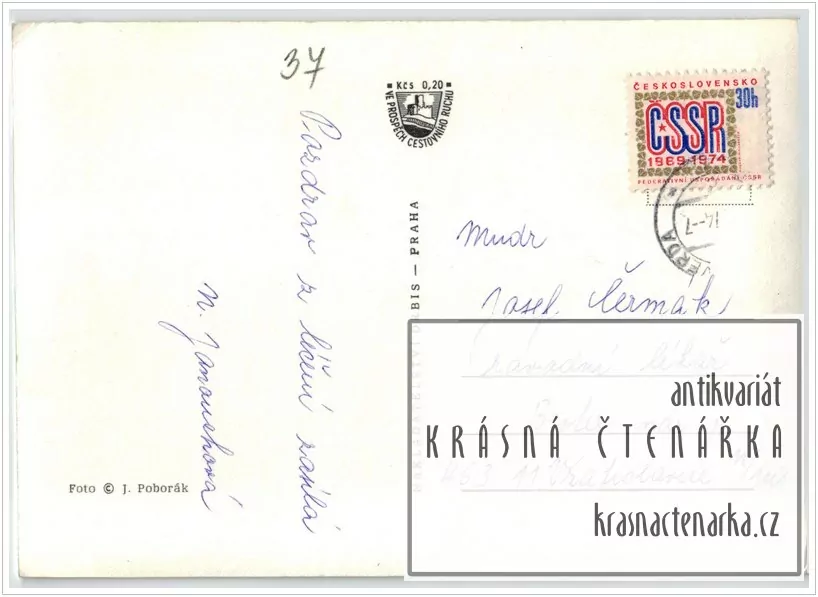 37
Kčs 0,20
VE PROSPĚCH CESTOVNÍHO RUCHU
Pozdrav z léčení zasílá
N. Janouchová
Foto © J. Poborák
ORBIS — PRAHA
ČESKOSLOVENSKO
30h
ČSSR
1969-1974
FEDERATIVNÍ USPOŘÁDÁNÍ ČSSR
VERDA
14.-7
Mudr
Josef Čermák
závodní lékař
463 11
antikvariát
KRÁSNÁ ČTENÁŘKA
krasnactenarka.cz